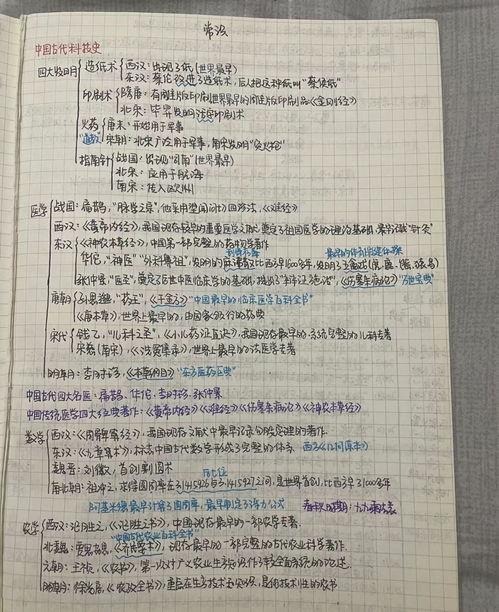 常识
中国古代科技史
四大发明 造纸术 西汉：出现了纸(世界最早)
东汉：蔡伦改进了造纸术，后人把这种纸叫"蔡侯纸"
印刷术 隋唐：有雕版印刷 世界最早的雕版印刷品《金刚经》
北宋：毕昇发明活字印刷术
火药 唐末：开始用于军事
宋朝：北宋广泛用于军事，南宋发明"突火枪"
指南针 战国：出现"司南"(世界最早)
北宋：应用于航海
南宋：传入欧洲
医学 战国：扁鹊，"脉学之宗"，他采用望闻问切四诊法，《难经》
西汉：《黄帝内经》，我国现存最早的重要医学文献，奠定了祖国医学的理论基础
东汉 《神农本草经》，中国第一部完整的药物学著作
华佗，"神医""外科鼻祖"，发明的麻沸散比西方早1600多年，发明了五禽戏
张仲景，"医圣"，奠定了后世中医临床学的基础，《伤寒杂病论》
唐朝 孙思邈，"药王"，《千金方》"中国最早的临床医学百科全书"
《唐本草》，世界上最早的，由国家颁行的药典
宋代 钱乙，"儿科之圣"，《小儿药证直诀》，我国现存最早的，系统完整的儿科专著
宋慈(南宋)，《洗冤集录》，世界上最早的法医学专著
明朝：李时珍，《本草纲目》"东方医药巨典"
中国古代四大名医：扁鹊、华佗、李时珍、张仲景
中国传统医学四大经典著作：《黄帝内经》《难经》《伤寒杂病论》《神农本草经》
数学 西汉：《周髀算经》，我国现存文献中最早记录勾股定理的著作
东汉：《九章算术》，标志中国古代数学形成了完整的体系 西方《几何原本》
魏晋：刘徽，首创割圆术
南北朝：祖冲之，求得圆周率在3.1415926与3.1415927之间，是世界首创，比西方早1000多年
农学 西汉：氾胜之，《氾胜之书》，中国现存最早的一部农学专著
中国古代农业百科全书
北魏：贾思勰，《齐民要术》，现存最早的一部完整的古代农业科学著作
元朝：王祯，《农书》，第一次对广义农业生产
明朝：徐光启，《农政全书》